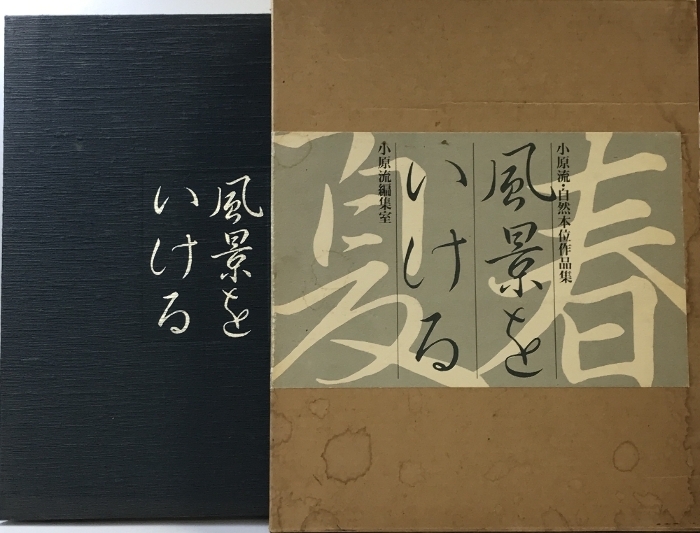 風景を
いける
春
小原流・自然本位作品集
風景を
いける
小原流編集室
夏